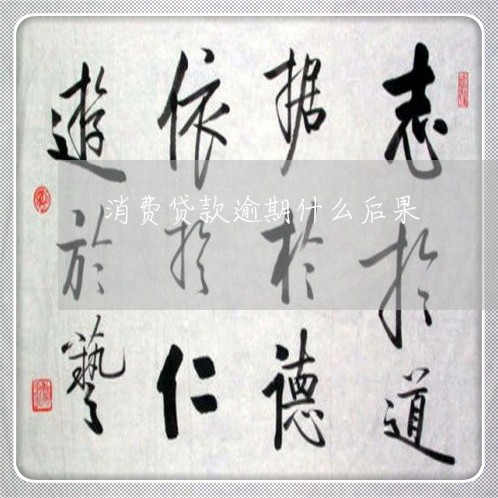 志於道
据於德
依於仁
遊於藝
消费贷款逾期什么后果